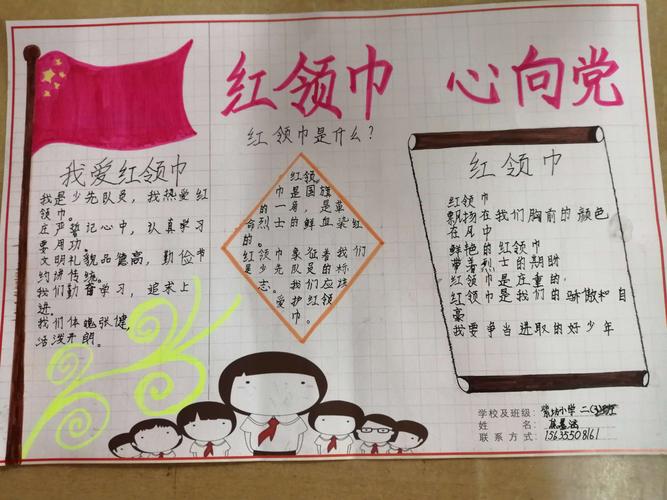 红领巾 心向党
红领巾是什么?
我爱红领巾
我是少先队员，我热爱红
领巾。
庄严誓记心中，认真学习
要用功。
文明礼貌品德高，勤俭节
约讲传统。
我们勤奋学习，追求上
进。
我们体魄张健，
活泼开朗。
红领
巾是国旗
的一角，是革
命烈士的鲜血染红
的。
红领巾象征着我们
是少先队员的标
志。我们应该
爱护红领
巾。
红领巾
红领巾
飘扬在我们胸前的颜色
在风中
鲜艳的红领巾
带着烈士的期盼
红领巾是庄重的
红领巾是我们的骄傲和自
豪
我要争当进取的好少年
学校及班级：小学 二(3)班
姓名：
联系方式：15635508161